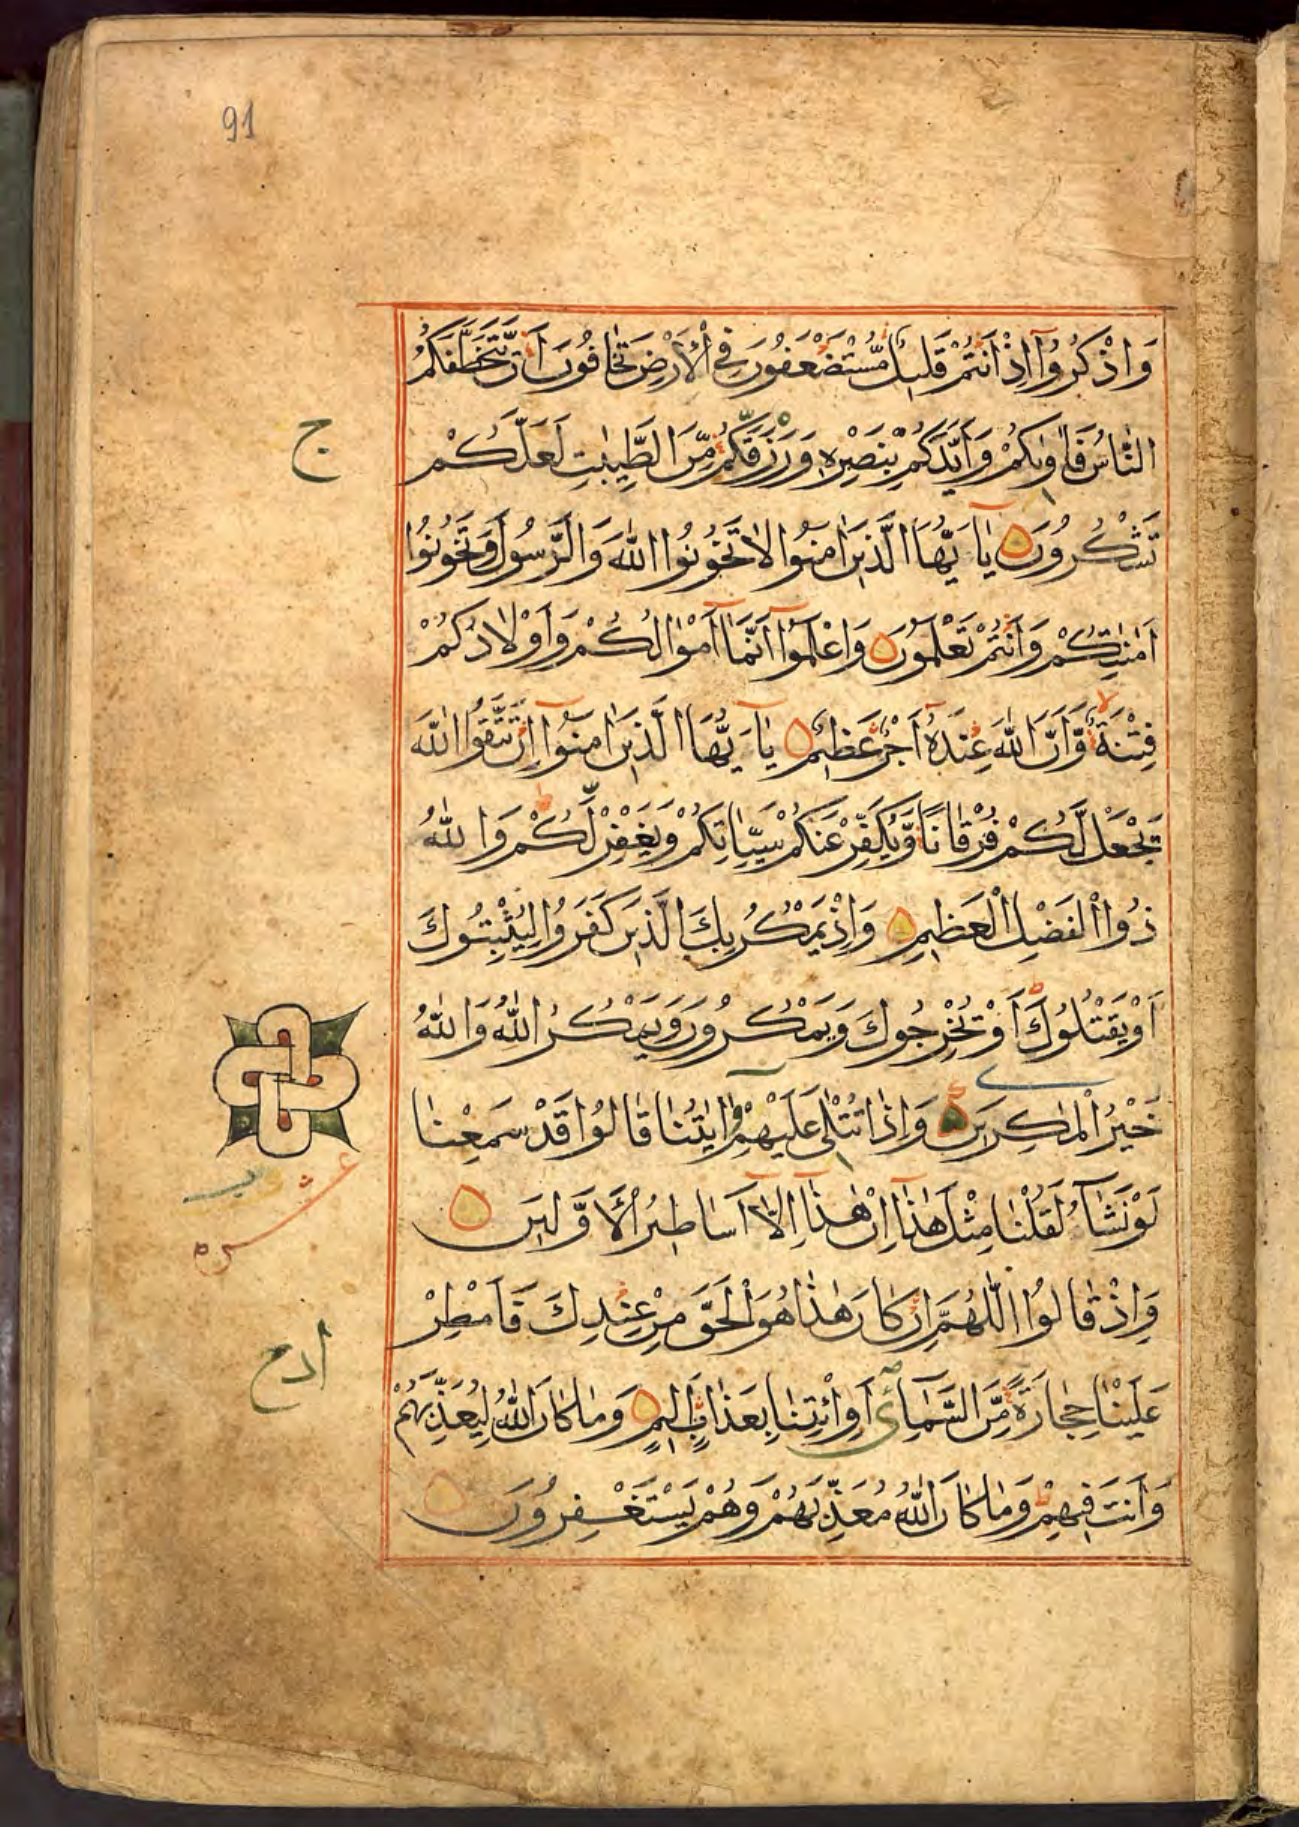 91
وَاذْكُرُوٓا اِذْ اَنْتُمْ قَلِيْلٌ مُّسْتَضْعَفُوْنَ فِي الْاَرْضِ تَخَافُوْنَ اَنْ يَّتَخَطَّفَكُمُ
النَّاسُ فَاٰوٰىكُمْ وَاَيَّدَكُمْ بِنَصْرِهٖ وَرَزَقَكُمْ مِّنَ الطَّيِّبٰتِ لَعَلَّكُمْ
تَشْكُرُوْنَ يٰٓاَيُّهَا الَّذِيْنَ اٰمَنُوْا لَا تَخُوْنُوا اللّٰهَ وَالرَّسُوْلَ وَتَخُوْنُوْٓا
اَمٰنٰتِكُمْ وَاَنْتُمْ تَعْلَمُوْنَ وَاعْلَمُوْٓا اَنَّمَآ اَمْوَالُكُمْ وَاَوْلَادُكُمْ
فِتْنَةٌ وَّاَنَّ اللّٰهَ عِنْدَهٗٓ اَجْرٌ عَظِيْمٌ يٰٓاَيُّهَا الَّذِيْنَ اٰمَنُوْٓا اِنْ تَتَّقُوا اللّٰهَ
يَجْعَلْ لَّكُمْ فُرْقَانًا وَّيُكَفِّرْ عَنْكُمْ سَيِّاٰتِكُمْ وَيَغْفِرْ لَكُمْ وَاللّٰهُ
ذُوا الْفَضْلِ الْعَظِيْمِ وَاِذْ يَمْكُرُ بِكَ الَّذِيْنَ كَفَرُوْا لِيُثْبِتُوْكَ
اَوْ يَقْتُلُوْكَ اَوْ يُخْرِجُوْكَ وَيَمْكُرُوْنَ وَيَمْكُرُ اللّٰهُ وَاللّٰهُ
خَيْرُ الْمٰكِرِيْنَ وَاِذَا تُتْلٰى عَلَيْهِمْ اٰيٰتُنَا قَالُوْا قَدْ سَمِعْنَا
لَوْ نَشَآءُ لَقُلْنَا مِثْلَ هٰذَآ اِنْ هٰذَآ اِلَّآ اَسَاطِيْرُ الْاَوَّلِيْنَ
وَاِذْ قَالُوا اللّٰهُمَّ اِنْ كَانَ هٰذَا هُوَ الْحَقَّ مِنْ عِنْدِكَ فَاَمْطِرْ
عَلَيْنَا حِجَارَةً مِّنَ السَّمَآءِ اَوِ ائْتِنَا بِعَذَابٍ اَلِيْمٍ وَمَا كَانَ اللّٰهُ لِيُعَذِّبَهُمْ
وَاَنْتَ فِيْهِمْ وَمَا كَانَ اللّٰهُ مُعَذِّبَهُمْ وَهُمْ يَسْتَغْفِرُوْنَ
ج